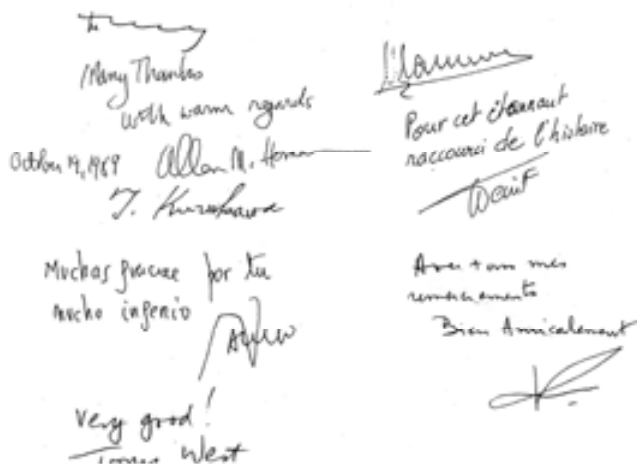 Many Thanks
with warm regards
October 19, 1989 Allan M.
T.
Muchas gracias por tu
mucho ingenio
Very good!
West
Pour cet étonnant
raccourci de l'histoire
Avec tous mes
remerciements
Bien Amicalement